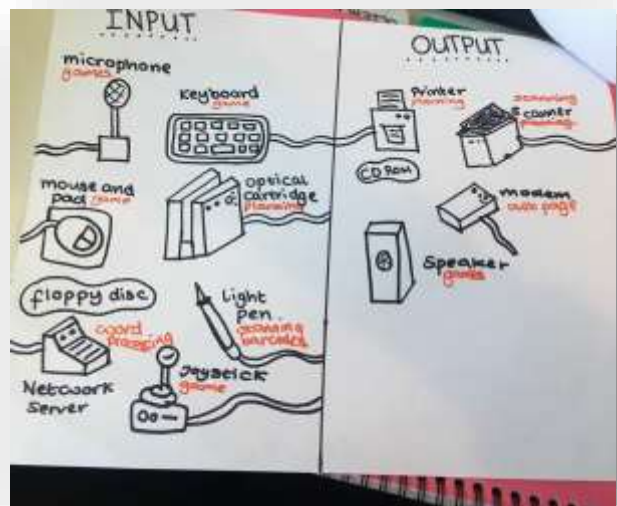 INPUT
microphone
games
Keyboard
game
mouse and
pad game
optical
cartridge
planning
floppy disc
word
processing
Network
Server
Light
pen.
scanning
barcodes
Joystick
game
OUTPUT
Printer
planning
scanning
scanner
planning
CD ROM
modem
page
Speaker
games